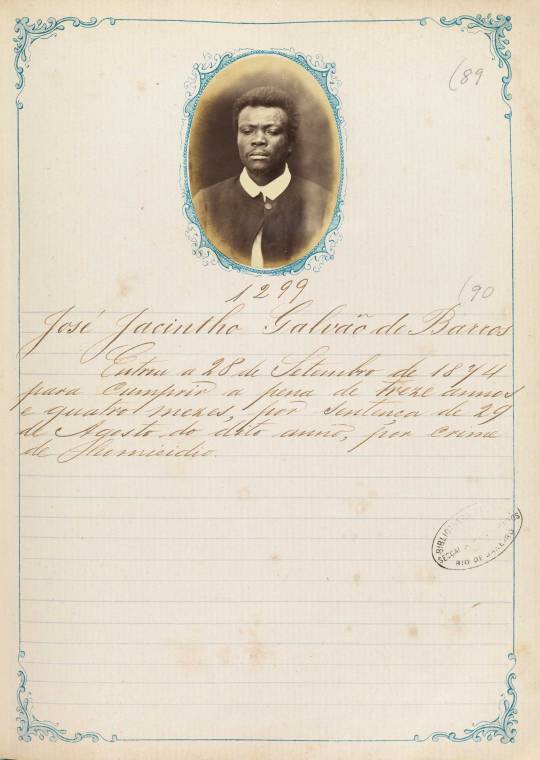 (89
1299
(90
José Jacintho Galvão de Barros
Entrou a 28 de Setembro de 1874
para cumprir a pena de treze annos
e quatro mezes, por sentença de 29
de Agosto do dito anno, por crime
de homicidio.
RIO DE JANEIRO